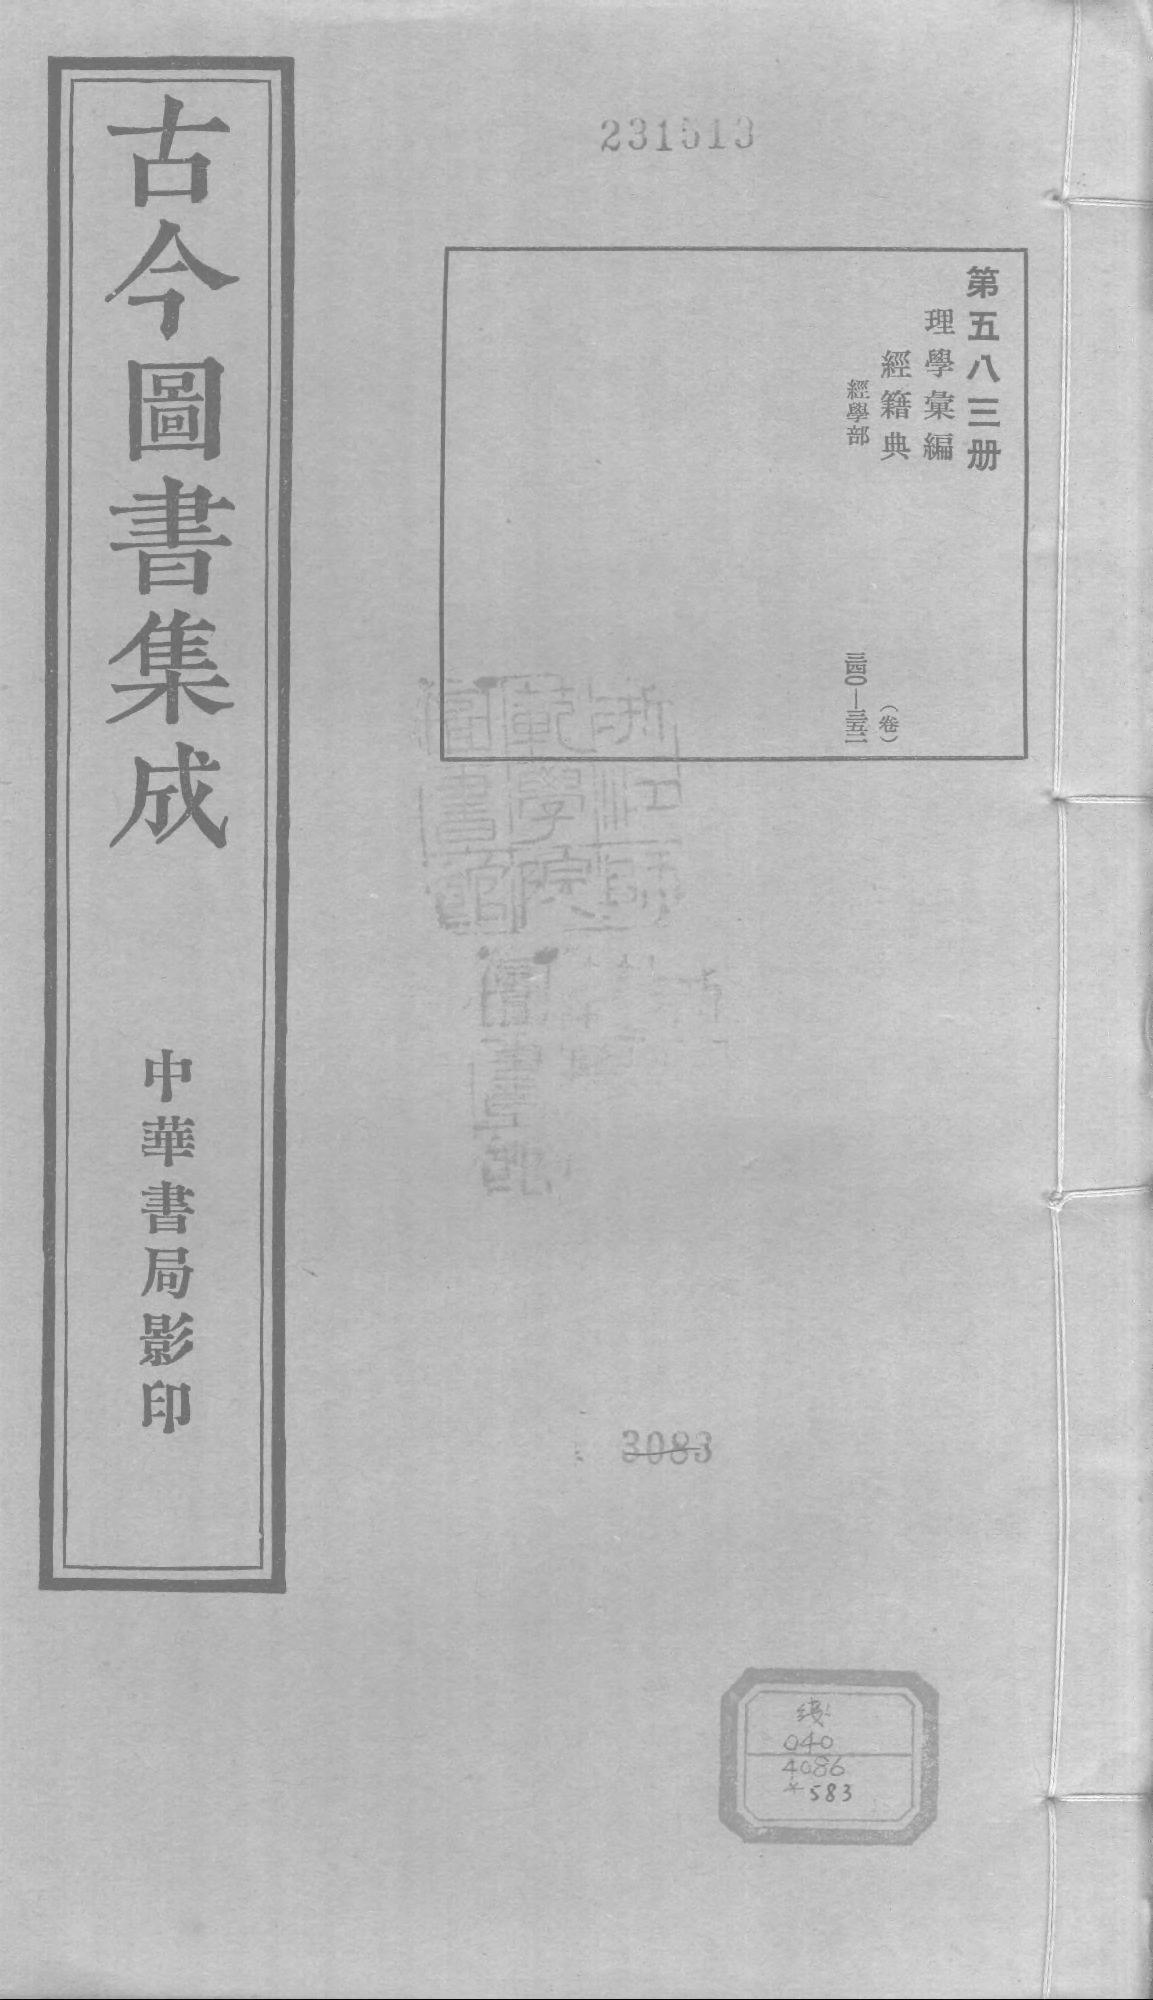 231513
第五八三册
理學彙編
經籍典
經學部
(卷)
三四〇—三五二
古今圖書集成
中華書局影印
浙江師
範學院
圖書館
圖書館
3083
綫
040
4086
583